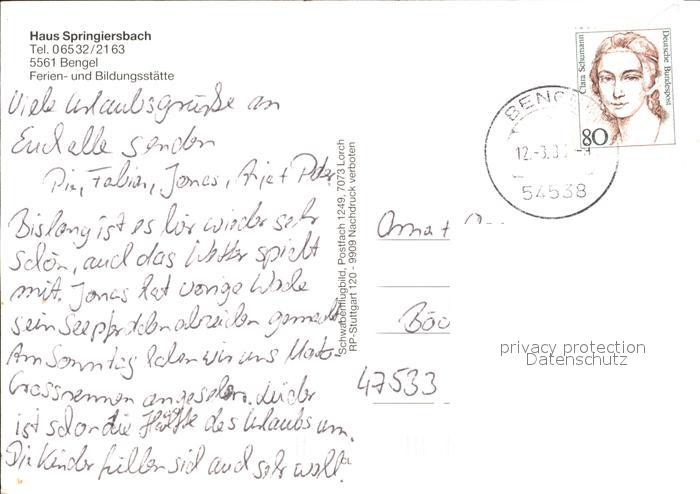 Haus Springiersbach
Tel. 06532/2163
5561 Bengel
Ferien- und Bildungsstätte
Viele Urlaubsgrüße an
Euch alle senden
Pia, Fabian, Jonas, + Peter
Bislang ist es hier wieder sehr
schön, auch das Wetter spielt
mit. Jonas hat vorige Woche
sein Seepferdchenabzeichen gemacht
Am Sonntag haben wir uns Moto-
Crossrennen angesehen. Leider
ist schon die Hälfte des Urlaubs um.
Die Kinder fühlen sich auch sehr wohl.
Schwabenflugbild, Postfach 1249, 7073 Lorch
RP-Stuttgart 120 - 9909 Nachdruck verboten
Clara Schumann
Deutsche Bundespost
80
BENGEL
54538
Oma +
47533
privacy protection
Datenschutz